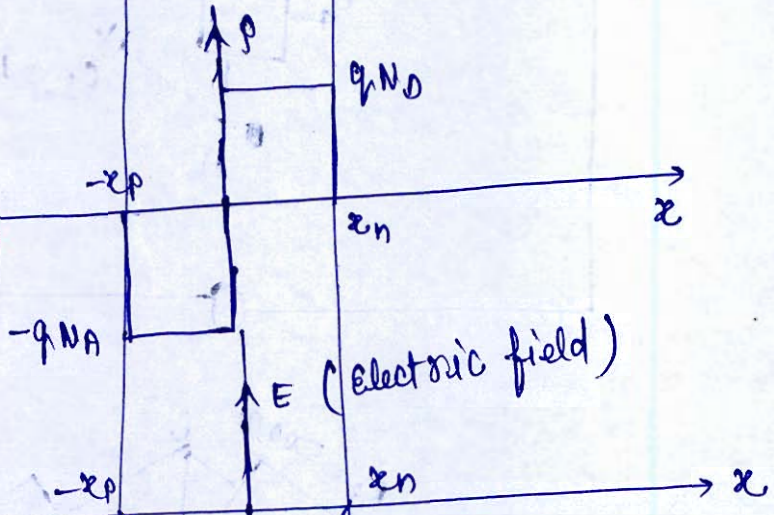 ρ
qND
-xp
xn
x
-qNA
E (Electric field)
-xp
xn
x